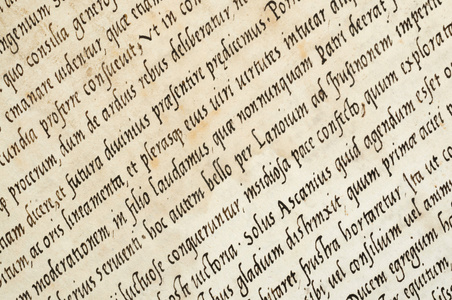 ingenium
quo consilia generos
emanare uidentur, quæ etiam
cundia proferre consueuit. Vt in con
procerum, dum de arduis rebus deliberatur, ne
dicere, et futura diuinius præsentire prædicimus. Pon
ac oris lineamenta, et plerasq eius uiri uirtutes intuear
moderationem, in filio laudamus, quæ nonnunquam patri deerat
servienti. hoc autem bello per Lanorum ad Frusinonem imperit
luctuose conqueruntur, insidiosa pace confecto, quum explora
uictoria. Solus Ascanius quid agendum esset
gladium distrinxit, quum primæ aciei
frustra hortaretur. Ita ut co
uel consilium uel anim
Ducem egregium